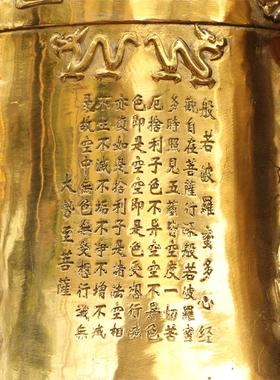 般若波羅蜜多心经
觀自在菩薩行深般若波羅蜜
多時照見五蘊皆空度一切苦
厄捨利子色不異空空不異色
色即是空空即是色受想行識
亦復如是捨利子是諸法空相
不生不滅不垢不净不增不減
是故空中無色無受想行識無
大勢至菩薩